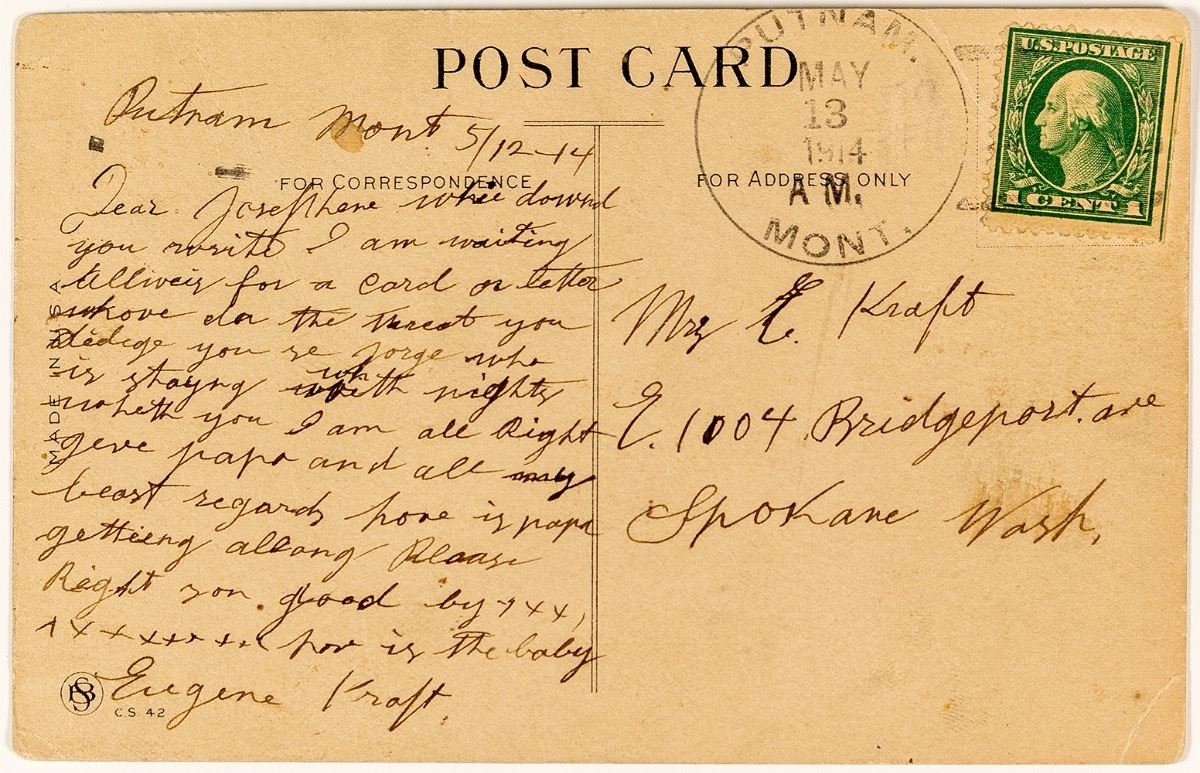 POST CARD
PUTNAM.
MAY
13
1914
A M.
MONT.
U.S. POSTAGE
1 CENT 1
FOR CORRESPONDENCE
FOR ADDRESS ONLY
Putnam Mont 5/12-14
Dear Josefhene whie
you write I am waiting
allweis for a card or letter
the you
you se Jorge who
is stayng with nights
wheth you I am all Right
geve papa and all my
beast regards hove is papa
gettieng allong Please
Right son good by xxx,
xxxxxxxx hov is the baby
Eugene Kraft
Mrs E. Kraft
E. 1004 Bridgeport. ave
Spokane Wash,
MADE IN U.S.A.
C.S. 42